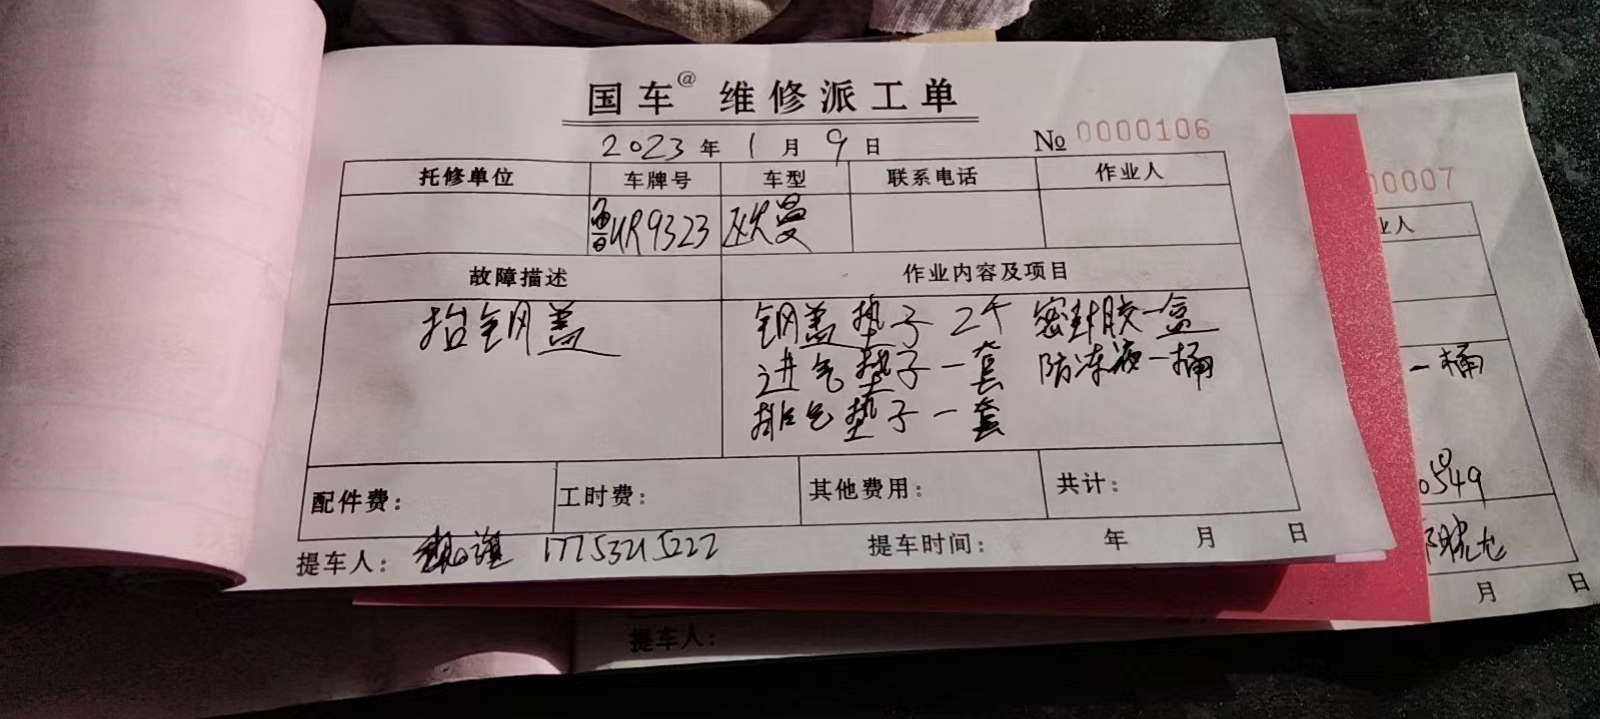 国车@ 维修派工单
2023年1月9日 № 0000106
托修单位 车牌号 车型 联系电话 作业人
鲁UR9323 欧曼
故障描述 作业内容及项目
抬钢盖 钢盖垫子2个 密封胶一盒
进气垫子一套 防冻液一桶
排气垫子一套
配件费: 工时费: 其他费用: 共计:
提车人: 17753215222 提车时间: 年 月 日
00007
业人
一桶
0549
月 日
提车人: